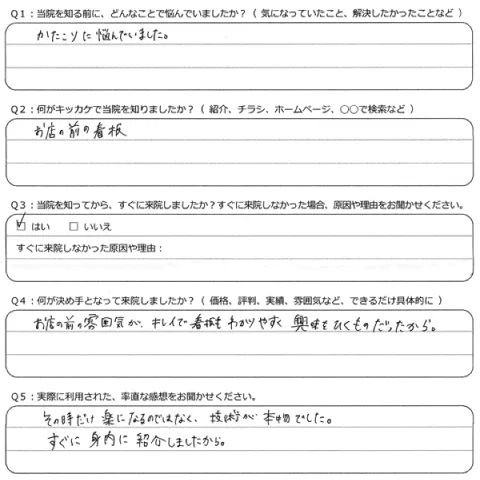 Q1：当院を知る前に、どんなことで悩んでいましたか？（ 気になっていたこと、解決したかったことなど ）
かたこりに悩んでいました。
Q2：何がキッカケで当院を知りましたか？（ 紹介、チラシ、ホームページ、○○で検索など ）
お店の前の看板
Q3：当院を知ってから、すぐに来院しましたか？すぐに来院しなかった場合、原因や理由をお聞かせください。
☑ はい □ いいえ
すぐに来院しなかった原因や理由：
Q4：何が決め手となって来院しましたか？（ 価格、評判、実績、雰囲気など、できるだけ具体的に ）
お店の前の雰囲気が、キレイで看板もわかりやすく興味をひくものだったから。
Q5：実際に利用された、率直な感想をお聞かせください。
その時だけ楽になるのではなく、技術が本物でした。
すぐに身内に紹介しましたから。